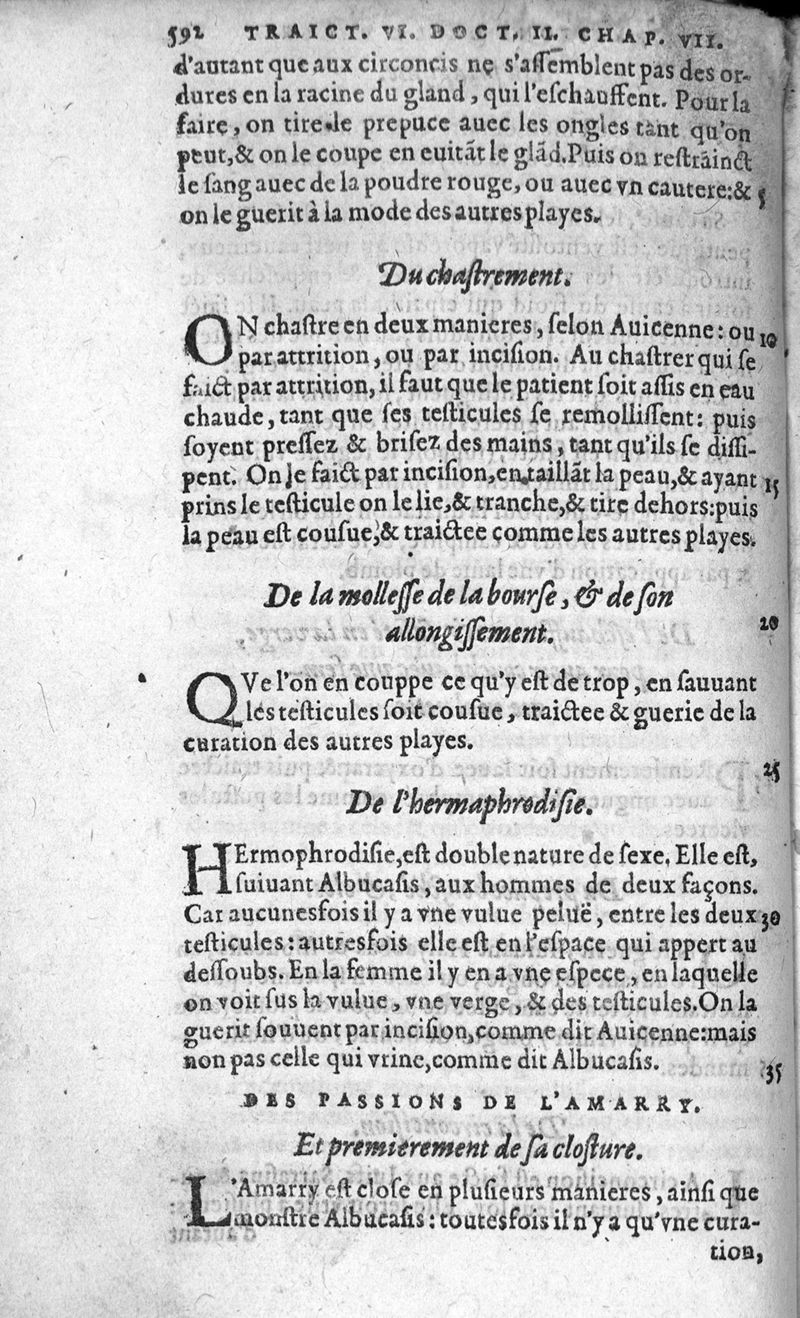 592 TRAICT. VI. DOCT. II. CHAP. VII.
d'autant que aux circoncis ne s'assemblent pas des or-
dures en la racine du gland, qui l'eschauffent. Pour la
faire, on tire le prepuce auec les ongles tant qu'on
peut, & on le coupe en euitāt le glād. Puis on restrāinct
le sang auec de la poudre rouge, ou auec vn cautere: & 5
on le guerit à la mode des autres playes.
Du chastrement.
ON chastre en deux manieres, selon Auicenne: ou 10
par attrition, ou par incision. Au chastrer qui se
faict par attrition, il faut que le patient soit assis en eau
chaude, tant que ses testicules se remollissent: puis
soyent pressez & brisez des mains, tant qu'ils se dissi-
pent. On le faict par incision, en taillāt la peau, & ayant 15
prins le testicule on le lie, & tranche, & tire dehors: puis
la peau est cousue, & traictee comme les autres playes.
De la mollesse de la bourse, & de son
allongissement. 20
QVe l'on en couppe ce qu'y est de trop, en sauuant
les testicules soit cousue, traictee & guerie de la
curation des autres playes.
25
De l'hermaphrodisie.
HErmophrodisie, est double nature de sexe. Elle est,
suiuant Albucasis, aux hommes de deux façons.
Car aucunesfois il y a vne vulue peluë, entre les deux 30
testicules: autresfois elle est en l'espace qui appert au
dessoubs. En la femme il y en a vne espece, en laquelle
on voit sus la vulue, vne verge, & des testicules. On la
guerit souuent par incision, comme dit Auicenne: mais
non pas celle qui vrine, comme dit Albucasis. 35
DES PASSIONS DE L'AMARRY.
Et premierement de sa closture.
L'Amarry est close en plusieurs manieres, ainsi que
monstre Albucasis: toutesfois il n'y a qu'vne cura-
tion,